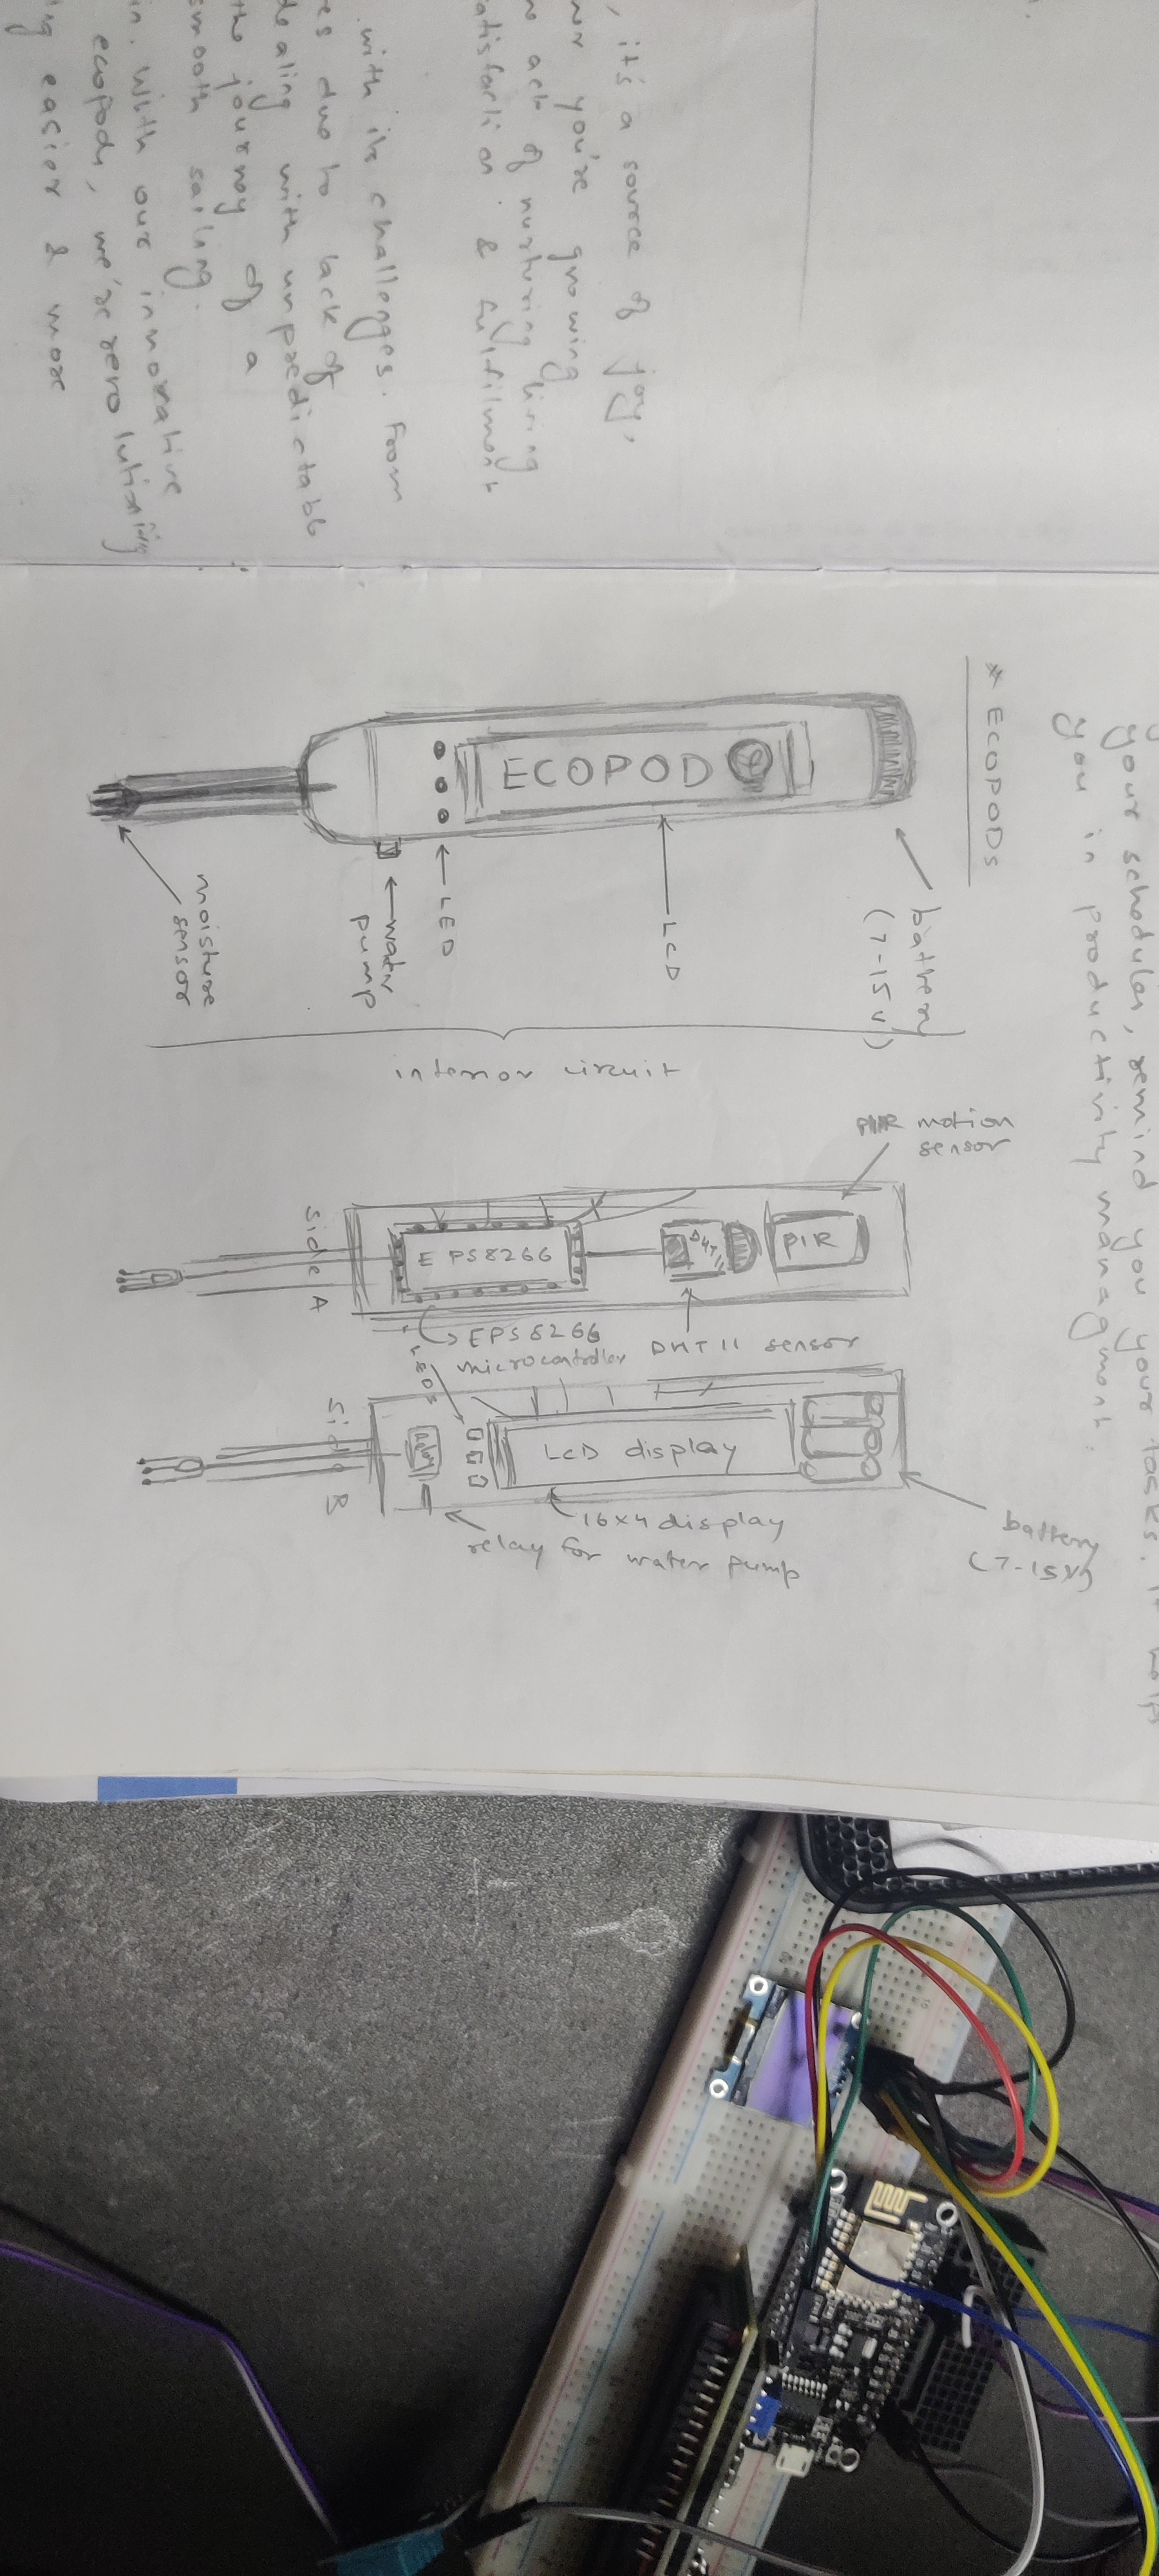 it's a source of joy,
you're growing
act of nurturing living
& fulfilment
with its challenges. From
due to lack of
with unpredictable
journey of a
smooth sailing.
with our innovative
ecopods, we're
easier & more
your schedules, remind you your tasks. It
you in productivity managment.
* ECOPODs
battery
(7-15v)
ECOPOD
LCD
LED
water
pump
moisture
sensor
interior circuit
PIR motion
sensor
PIR
DHT11
EPS8266
Side A
DHT 11 sensor
EPS8266
microcontroller
LEDs
LCD display
Relay
Side B
battery
(7-15V)
16x4 display
relay for water pump